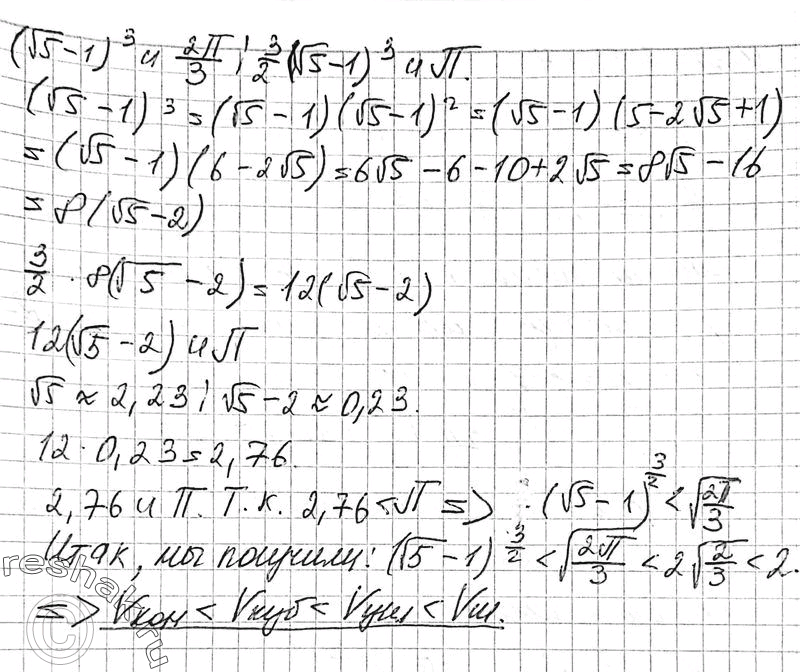 (√5-1)³ и 2П/3 ; 3/2(√5-1)³ и П.
(√5-1)³ = (√5-1)(√5-1)² = (√5-1)(5-2√5+1)
= (√5-1)(6-2√5) = 6√5-6-10+2√5 = 8√5-16
= 8(√5-2)
3/2 · 8(√5-2) = 12(√5-2)
12(√5-2) и П
√5 ≈ 2,23 ; √5-2 ≈ 0,23.
12·0,23 = 2,76.
2,76 и П. Т.к. 2,76 < П => (√5-1)^(3/2) < √(2П/3)
Итак, мы получили: (√5-1)^(3/2) < √(2П/3) < 2√(2/3) < 2.
=> Vкон < Vкуб < Vцил < Vш.
reshak.ru
©